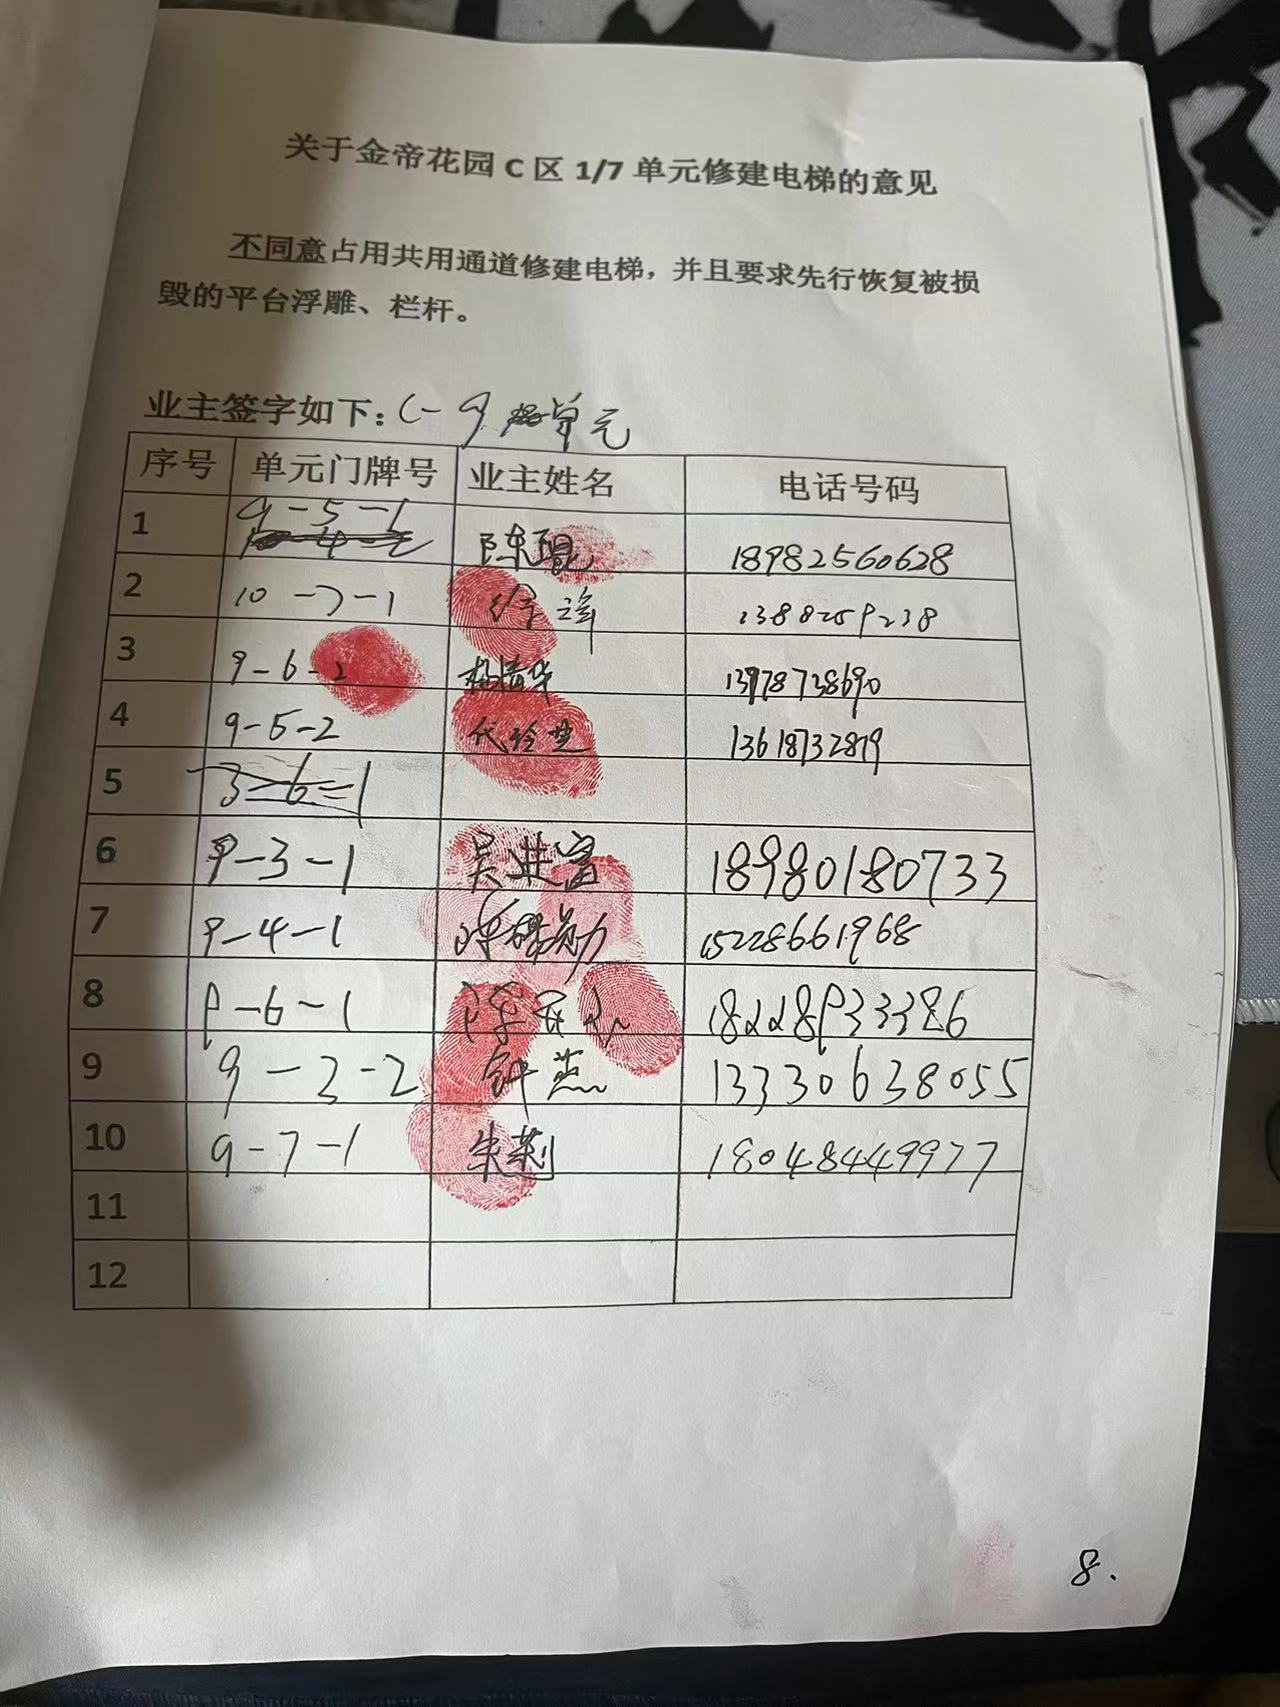 关于金帝花园 C 区 1/7 单元修建电梯的意见
不同意占用共用通道修建电梯，并且要求先行恢复被损
毁的平台浮雕、栏杆。
业主签字如下：C-9 单元
序号 单元门牌号 业主姓名 电话号码
1 9-5-1 陈琨 18982560628
2 10-7-1 1388259238
3 9-6-2 杨清华 13978738690
4 9-5-2 代玲芝 13618732819
5 3-6-1
6 9-3-1 吴进富 18980180733
7 9-4-1 15228661968
8 9-6-1 18228933386
9 9-3-2 钟燕 13330638055
10 9-7-1 朱莉 18048449977
11
12
8.